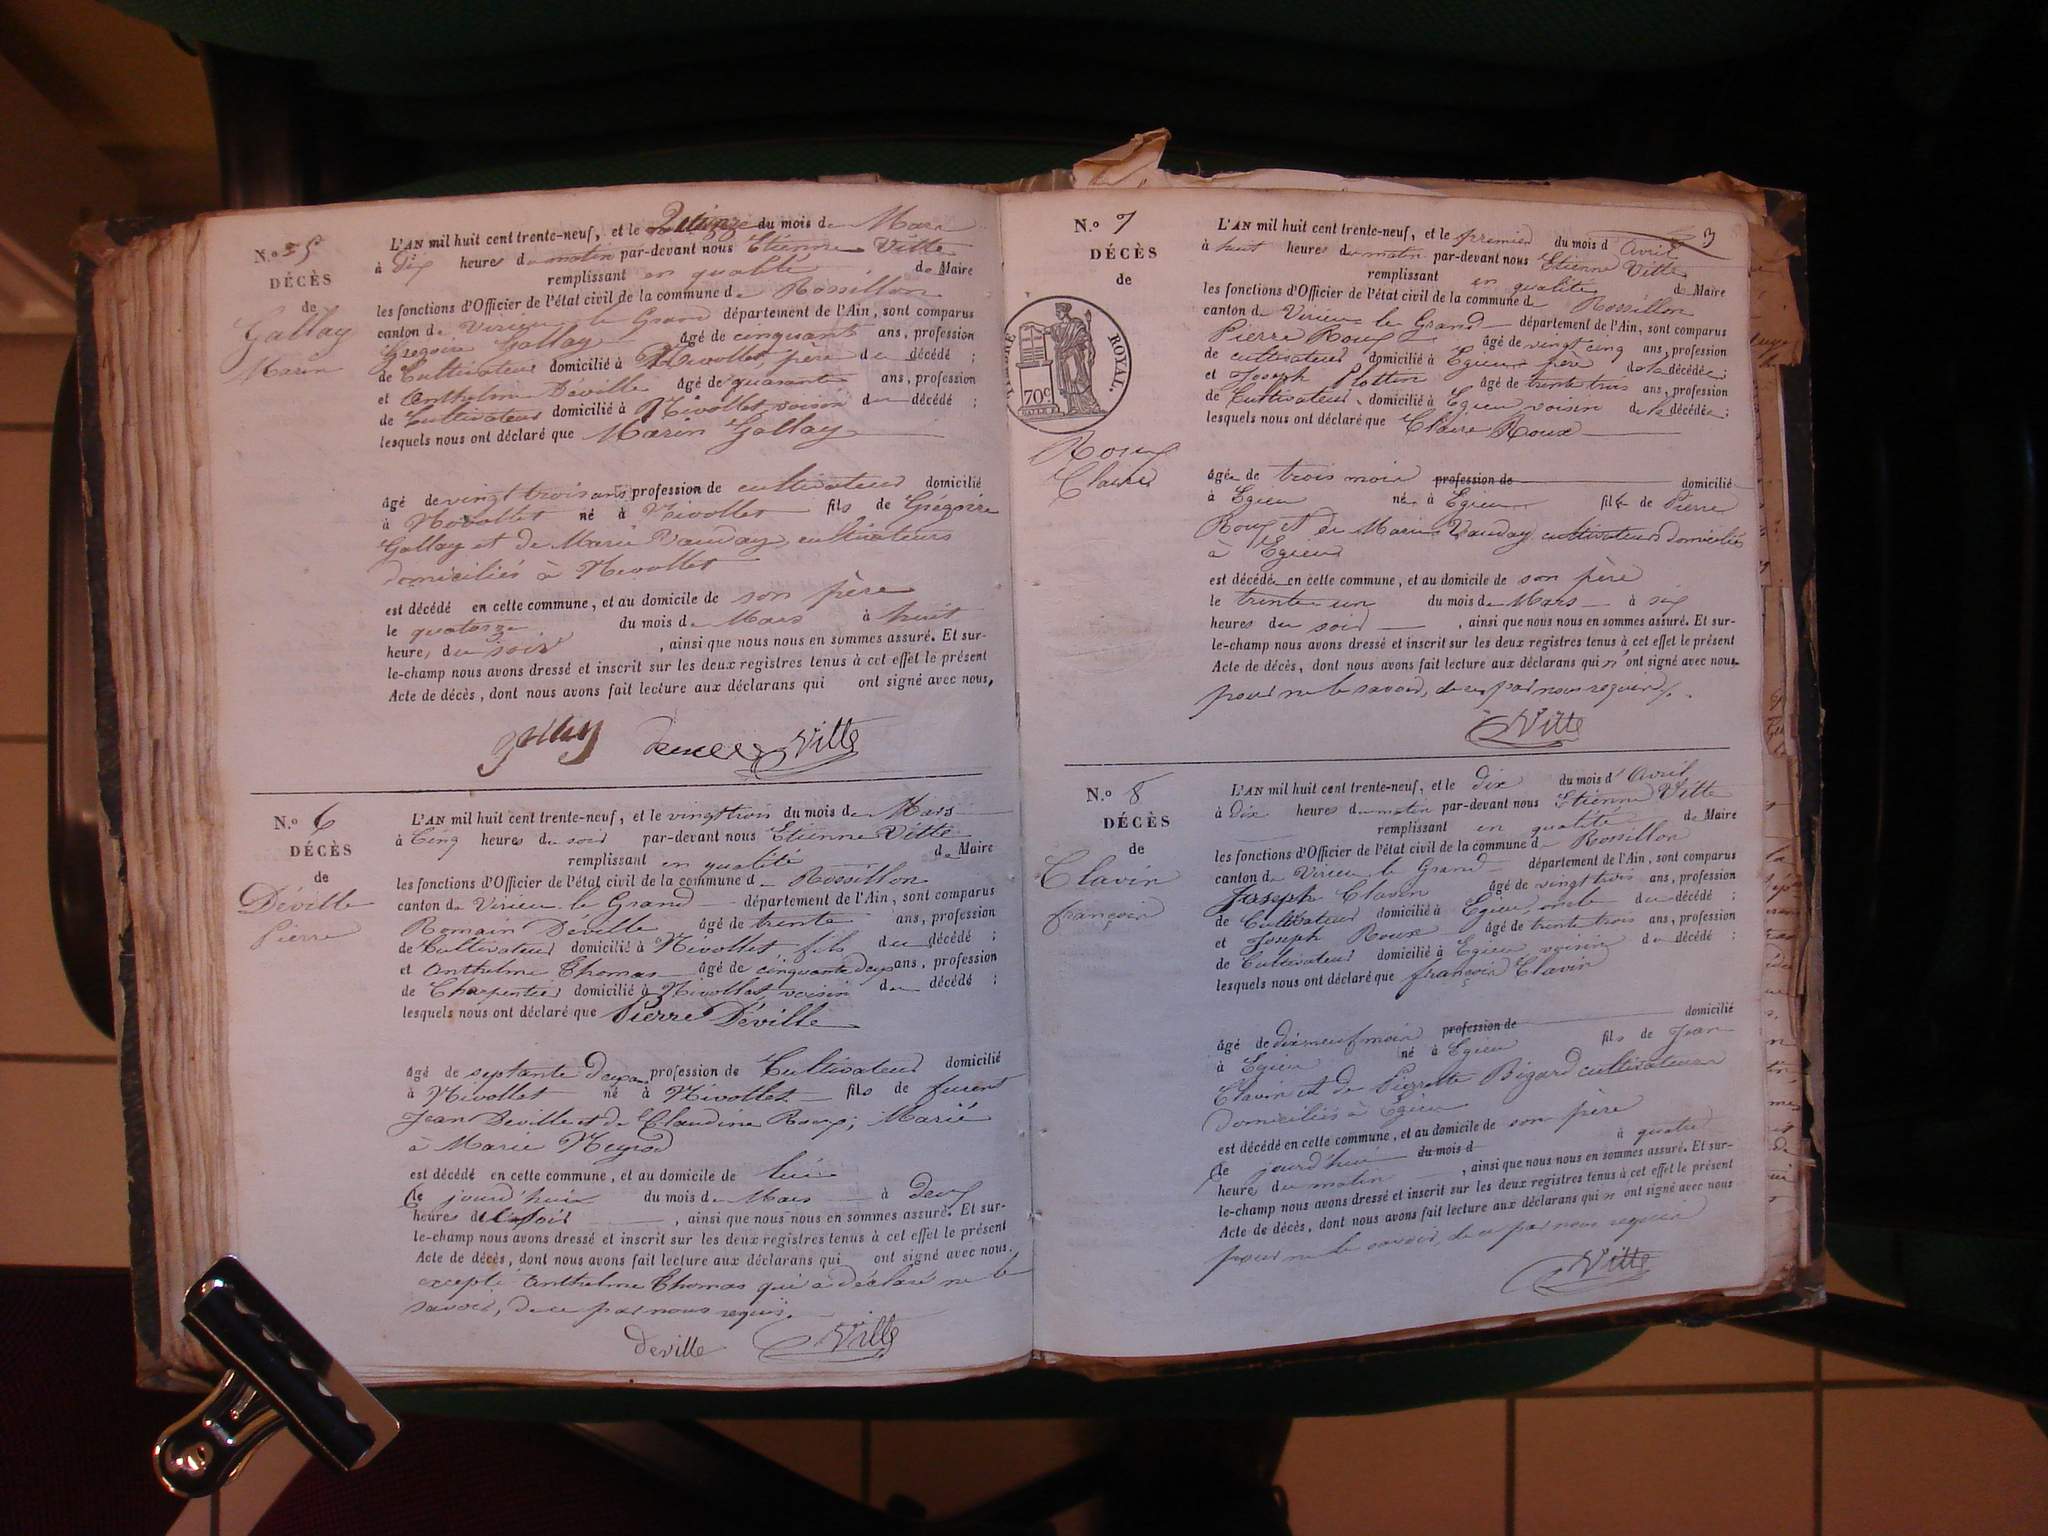 N.o 5
DÉCÈS
de
Gallay
Marin
L'AN mil huit cent trente-neuf, et le Quinze du mois de Mars
à Dix heures du matin par-devant nous Etienne Vitte
remplissant en qualité de Maire
les fonctions d'Officier de l'état civil de la commune de Rossillon
canton de Virieu le Grand département de l'Ain, sont comparus
Gregoire Gallay âgé de cinquante ans, profession
de Cultivateur domicilié à Nivollet, père du décédé ;
et Anthelme Déville âgé de quarante ans, profession
de Cultivateur domicilié à Nivollet voisin du décédé ;
lesquels nous ont déclaré que Marin Gallay
âgé de vingt trois ans profession de cultivateur domicilié
à Nivollet né à Nivollet fils de Grégoire
Gallay et de Marie Vauday, cultivateurs
domiciliés à Nivollet
est décédé en cette commune, et au domicile de son père
le quatorze du mois de Mars à huit
heure, du soir , ainsi que nous nous en sommes assuré. Et sur-
le-champ nous avons dressé et inscrit sur les deux registres tenus à cet effet le présent
Acte de décès, dont nous avons fait lecture aux déclarans qui ont signé avec nous,
Vitte
N.o 6
DÉCÈS
de
Déville
Pierre
L'AN mil huit cent trente-neuf, et le vingt trois du mois de Mars
à Cinq heures du soir par-devant nous Etienne Vitte
remplissant en qualité de Maire
les fonctions d'Officier de l'état civil de la commune d Rossillon
canton de Virieu le Grand département de l'Ain, sont comparus
Romain Déville âgé de trente ans, profession
de Cultivateur domicilié à Nivollet fils du décédé ;
et Anthelme Thomas âgé de cinquante deux ans, profession
de Charpentier domicilié à Nivollet, voisin du décédé ;
lesquels nous ont déclaré que Pierre Déville
âgé de septante deux ans profession de Cultivateur domicilié
à Nivollet né à Nivollet fils de furent
Jean Deville et de Claudine Roux; Marié
à Marie
est décédé en cette commune, et au domicile de lui
Ce jourd'hui du mois de Mars à Deux
heures de soir , ainsi que nous nous en sommes assuré. Et sur-
le-champ nous avons dressé et inscrit sur les deux registres tenus à cet effet le présent
Acte de décès, dont nous avons fait lecture aux déclarans qui ont signé avec nous.
excepté Anthelme Thomas qui a déclaré ne le
savoir, de ce par nous requis.
Deville Vitte
3
N.o 7
DÉCÈS
de
TIMBRE ROYAL.
70c
Roux
Claire
L'AN mil huit cent trente-neuf, et le premier du mois d Avril
à huit heures du matin par-devant nous Etienne Vitte
remplissant en qualité de Maire
les fonctions d'Officier de l'état civil de la commune de Rossillon
canton de Virieu le Grand département de l'Ain, sont comparus
Pierre Roux âgé de vingt cinq ans, profession
de cultivateur domicilié à Egieu père de la décédée ;
et Joseph Plottin âgé de trente trois ans, profession
de Cultivateur domicilié à Egieu voisin de la décédée ;
lesquels nous ont déclaré que Claire Roux
âgée de trois mois profession de domicilié
à Egieu née à Egieu fille de Pierre
Roux et de Marie Vauday cultivateurs domiciliés
à Egieu
est décédée en cette commune, et au domicile de son père
le trente un du mois de Mars à six
heures du soir , ainsi que nous nous en sommes assuré. Et sur-
le-champ nous avons dressé et inscrit sur les deux registres tenus à cet effet le présent
Acte de décès, dont nous avons fait lecture aux déclarans qui n'ont signé avec nous
pour ne le savoir, de ce par nous requis.
Vitte
N.o 8
DÉCÈS
de
Clavin
françois
L'AN mil huit cent trente-neuf, et le dix du mois d'Avril
à Dix heures du matin par-devant nous Etienne Vitte
remplissant en qualité de Maire
les fonctions d'Officier de l'état civil de la commune d Rossillon
canton de Virieu le Grand département de l'Ain, sont comparus
Joseph Clavin âgé de vingt trois ans, profession
de Cultivateur domicilié à Egieu, oncle du décédé ;
et Joseph Roux âgé de trente trois ans, profession
de Cultivateur domicilié à Egieu voisin du décédé ;
lesquels nous ont déclaré que françois Clavin
âgé de dix neuf mois profession de domicilié
à Egieu né à Egieu fils de Jean
Clavin et de Pierrette Bigard cultivateurs
Domiciliés à Egieu
est décédé en cette commune, et au domicile de son père
Ce jourd'hui du mois d à quatre
heure du matin , ainsi que nous nous en sommes assuré. Et sur-
le-champ nous avons dressé et inscrit sur les deux registres tenus à cet effet le présent
Acte de décès, dont nous avons fait lecture aux déclarans qui n ont signé avec nous
pour ne le savoir, de ce par nous requis
Vitte